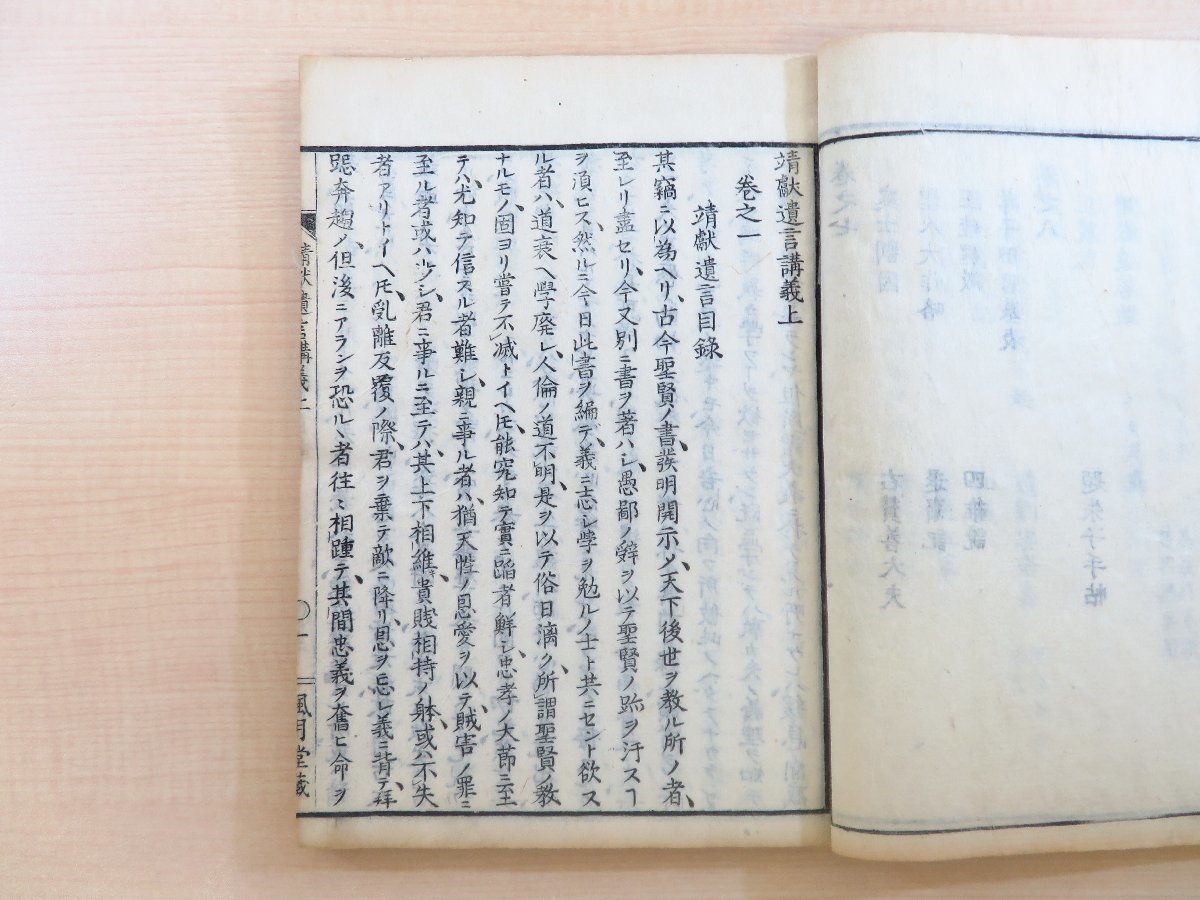 靖献遺言講義上
巻之一
靖獻遺言目錄
其竊ニ以為ヘリ古今聖賢ノ書發明開示〆天下後世ヲ教ル所ノ者
至レリ盡セリ今又別ニ書ヲ著ハシ愚鄙ノ辭ヲ以テ聖賢ノ跡ヲ汙スヿ
ヲ須ヒス然ルニ今日此書ヲ編テ義ニ志シ學ヲ勉ルノ士ト共ニセント欲ス
ル者ハ道衰ヘ學廢レ人倫ノ道不明是ヲ以テ俗日漓ク所謂聖賢ノ教
ナルモノ固ヨリ嘗テ不滅トイヘ𪜈能究知テ實ニ蹈者鮮シ忠孝ノ大節ニ至
テハ尤知テ信スル者難シ親ニ事ル者ハ猶天性ノ恩愛ヲ以テ賊害ノ罪ニ
至ル者或ハ少シ君ニ事ルニ至テハ其上下相維貴賤相持ノ躰或ハ不失
者アリトイヘ𪜈乱離反覆ノ際君ヲ棄テ敵ニ降リ恩ヲ忘レ義ニ背テ拜
跽奔趨〆但後ニアランヲ恐ルヽ者往〻相踵テ其間忠義ヲ奮ヒ命ヲ
靖献遺言講義上
〇一
風月堂藏
巻之七
巻之八